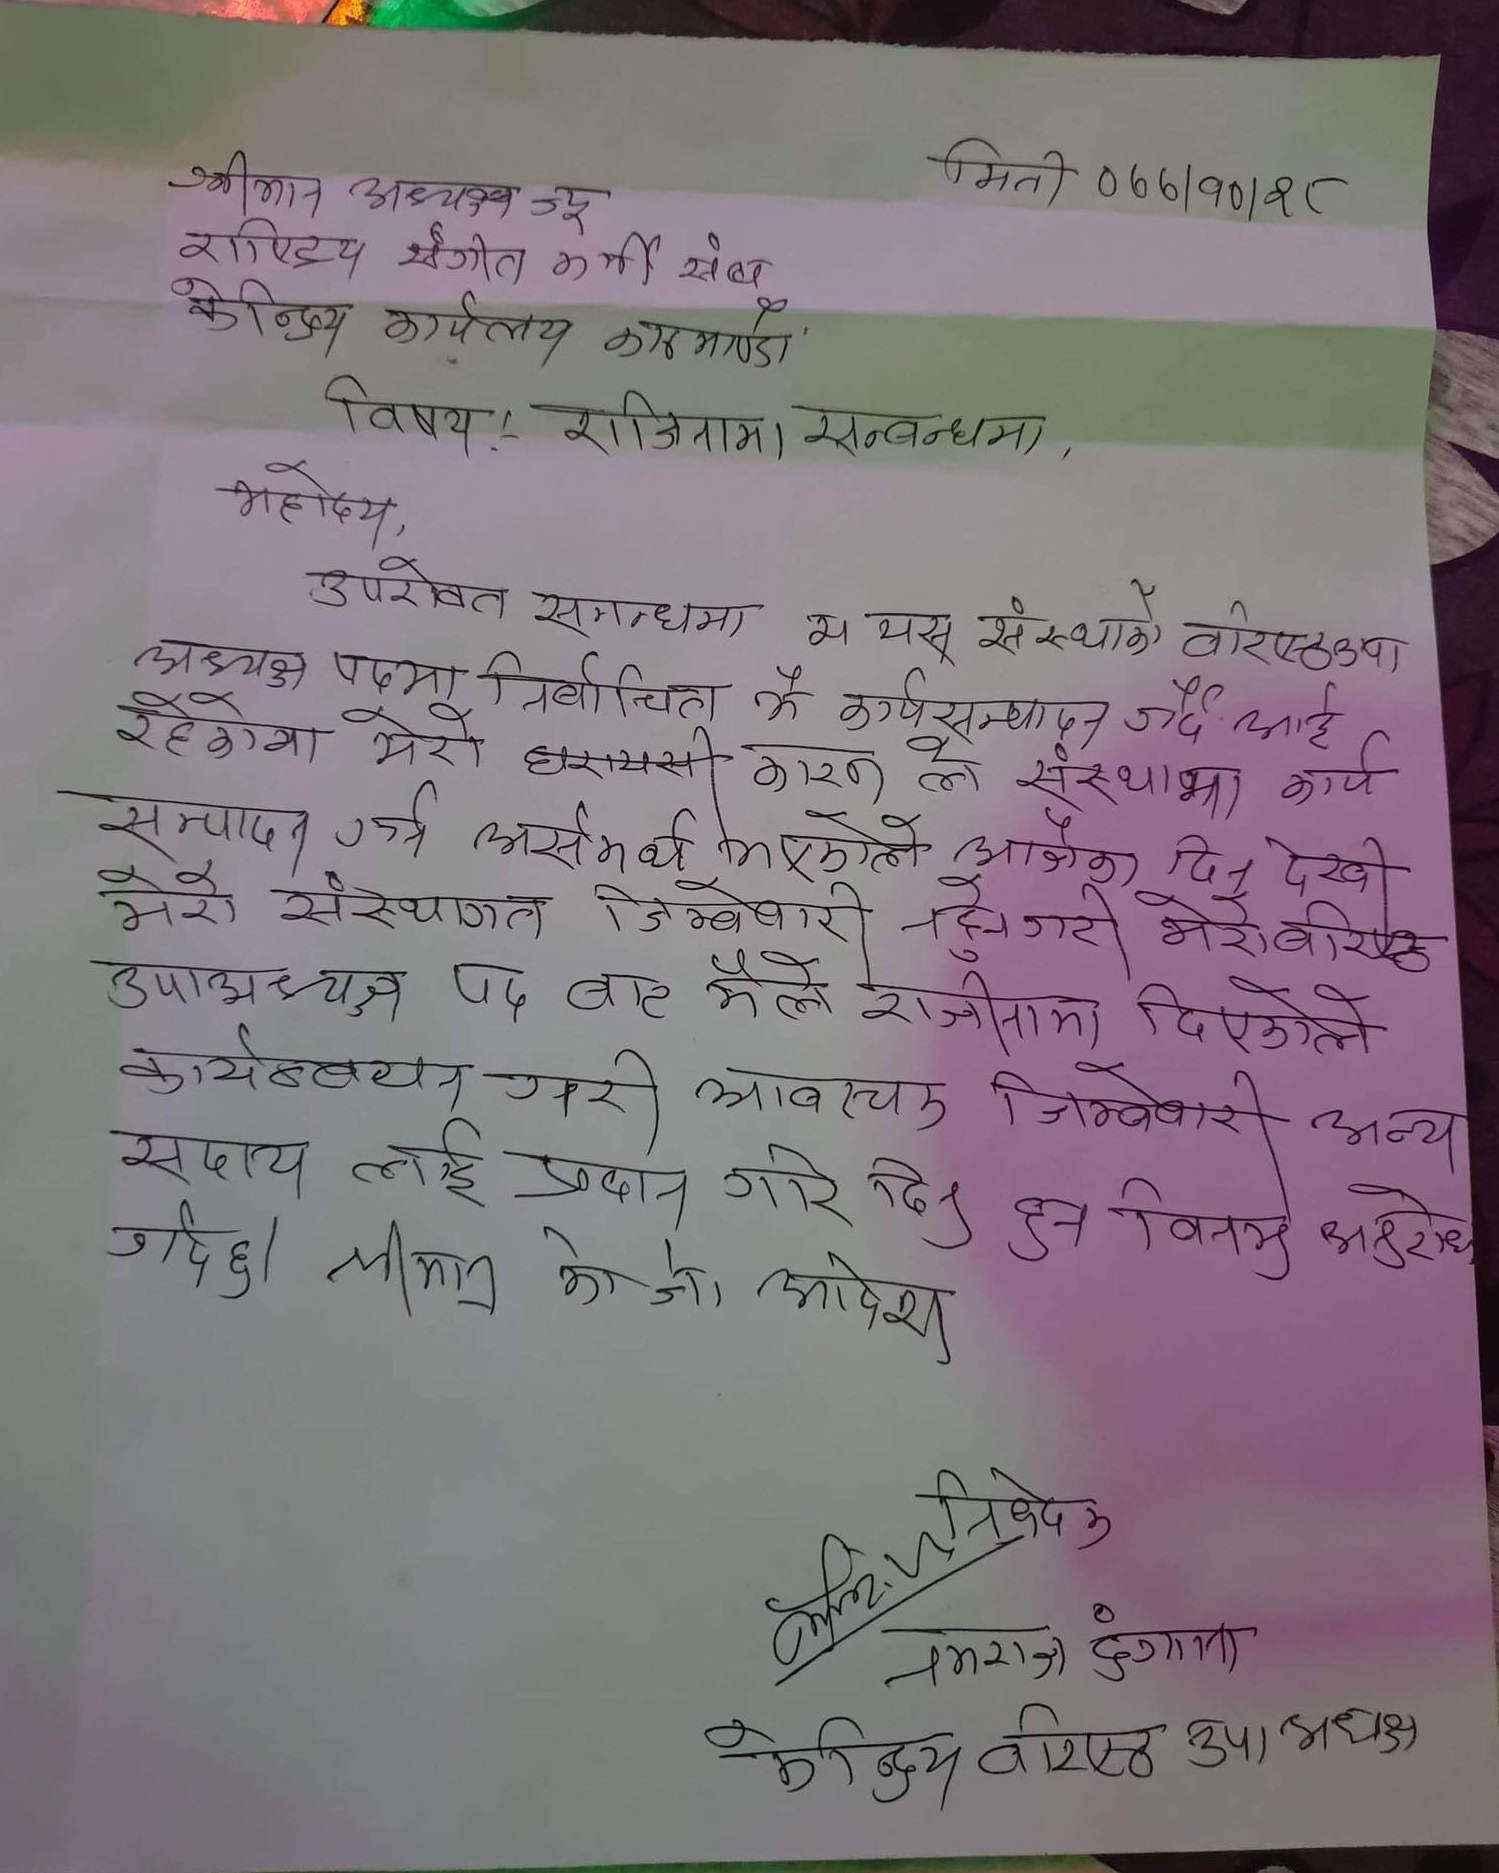 मिती ०७७/१०/१८
श्रीमान अध्यक्ष ज्यू
राष्ट्रिय संगीत कर्मी संघ
केन्द्रिय कार्यलय काठमाण्डौ
विषय:- राजिनामा सम्बन्धमा,
महोदय,
उपरोक्त सम्बन्धमा म यस संस्थाको वरिष्ठ उपा
अध्यक्ष पदमा निर्वाचित भै कार्यसम्पादन गर्दै आई
रहेकोमा मेरो घरायसी कारण ले संस्थामा कार्य
सम्पादन गर्न असमर्थ भएकोले आजैका दिन देखी
मेरो संस्थागत जिम्बेवारी नहुने गरी मेरो वरिष्ठ
उपाअध्यक्ष पद बाट मैले राजीनामा दिएकोले
गरी आवश्यक जिम्बेवारी अन्य
सदस्य लाई प्रदान गरि दिनु हुन विनम्र अनुरोध
गर्दछु। श्रीमान को जो आदेश
निवेदक
केन्द्रिय वरिष्ठ उपाअध्यक्ष